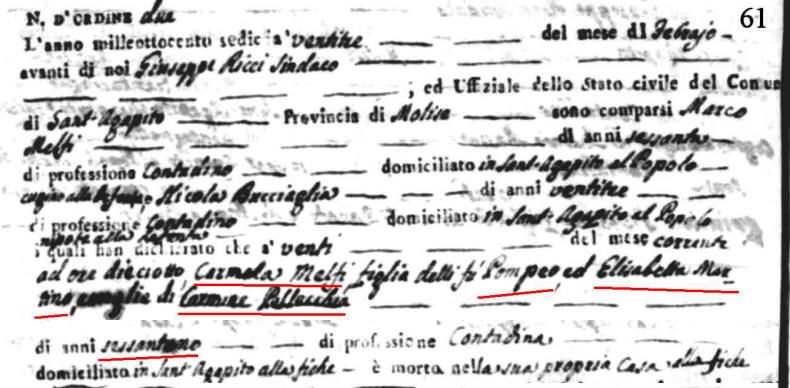 61
N. D'ORDINE due
L'anno milleottocento sedici a' ventitre del mese di Febrajo
avanti di noi Giuseppe Ricci Sindaco
; ed Uffiziale dello Stato civile del Comun
di Sant'Agapito Provincia di Molise sono comparsi Marco
Melfi di anni sessanta
di professione Contadino domiciliato in Sant'Agapito al Popolo
cugino alla defunta Nicola Bucciaglia di anni ventitre
di professione Contadino domiciliato in Sant'Agapito al Popolo
nipote alla defunta
i quali han dichiarato che a' venti del mese corrente
ad ore dieciotto Carmela Melfi figlia delli fù Pompeo, ed Elisabetta Mar
tino, moglie di Carmine Pellecchia
di anni sessantuno di professione Contadina
domiciliato in Sant'Agapito alla fiche è morto nella sua propria Casa alla fiche